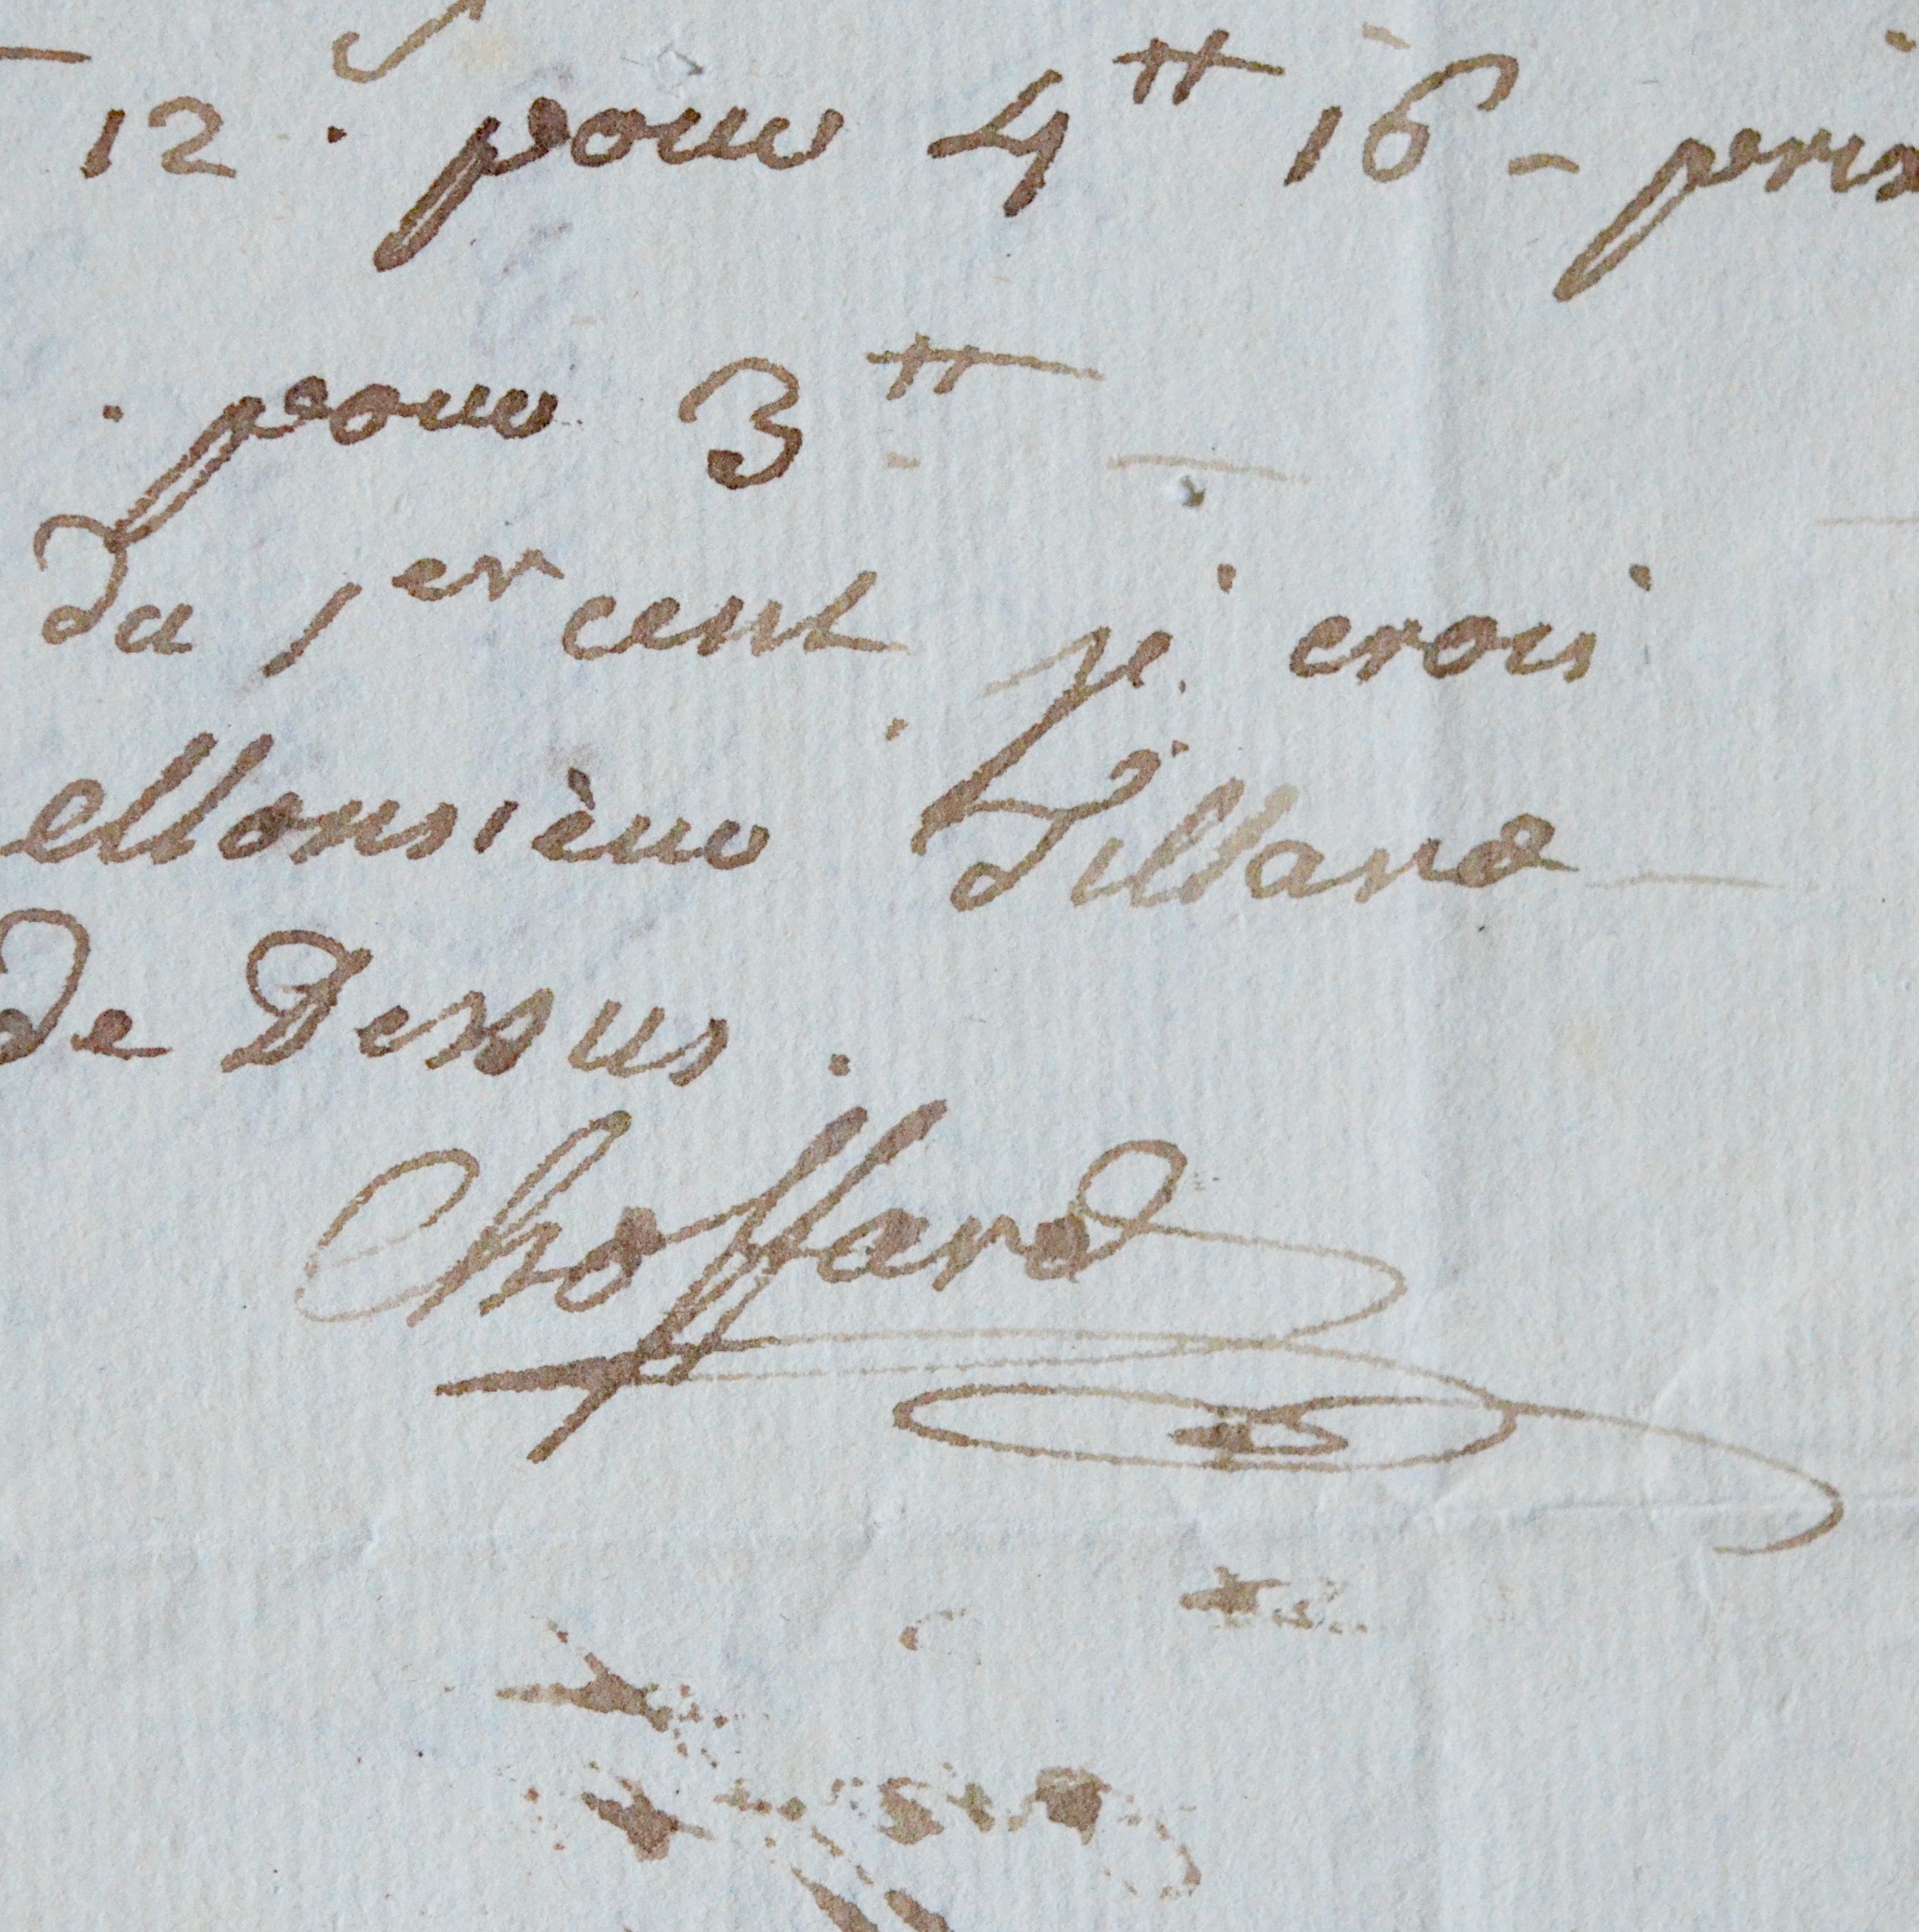 12. pour 4tt 16 - prix
. pour 3tt
du 1er cent. je crois
Monsièur Tillard
de Dessus.
Choffard